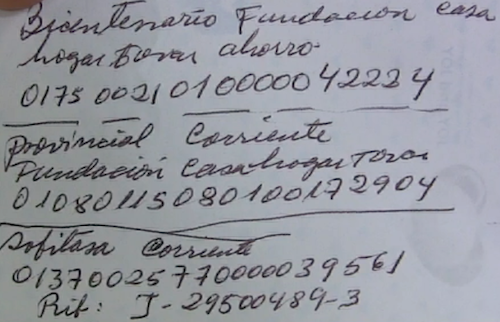 Bicentenario Fundacion casa
hogar Tovar ahorro.
0175 0021 0100000 42224
Provincial Corriente
Fundación Casa hogar Tovar
01080115080100172904
Sofitasa Corriente
01370025770000039561
Rif: J-29500489-3